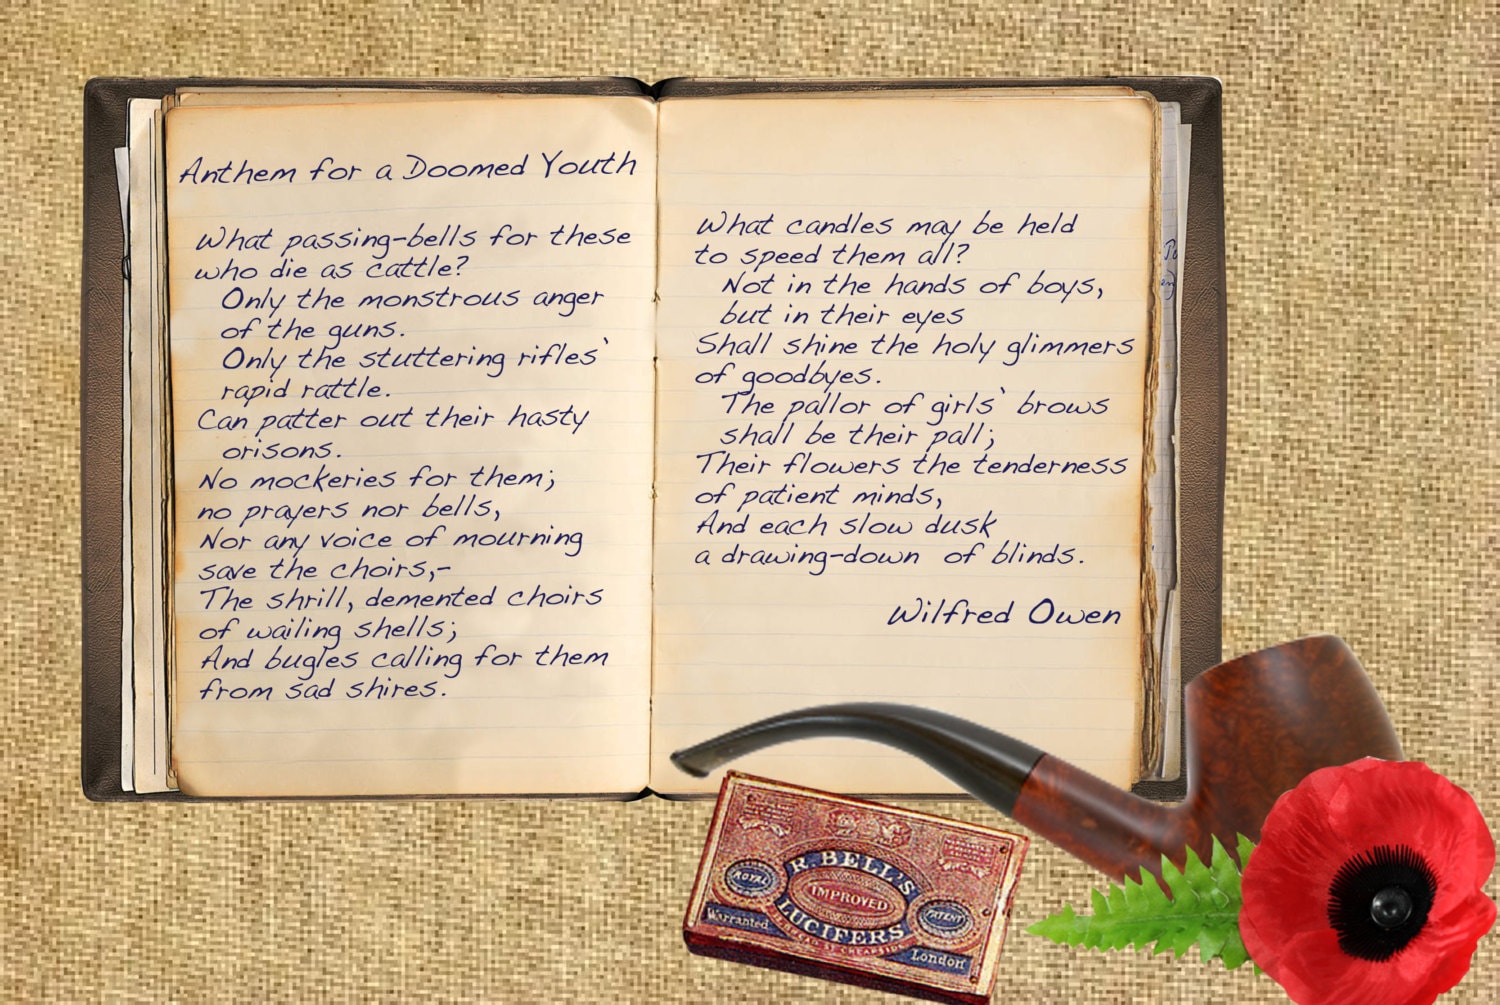 Anthem for a Doomed Youth
What passing-bells for these
who die as cattle?
Only the monstrous anger
of the guns.
Only the stuttering rifles'
rapid rattle.
Can patter out their hasty
orisons.
No mockeries for them;
no prayers nor bells,
Nor any voice of mourning
save the choirs,-
The shrill, demented choirs
of wailing shells;
And bugles calling for them
from sad shires.
What candles may be held
to speed them all?
Not in the hands of boys,
but in their eyes
Shall shine the holy glimmers
of goodbyes.
The pallor of girls' brows
shall be their pall;
Their flowers the tenderness
of patient minds,
And each slow dusk
a drawing-down of blinds.
Wilfred Owen
R. BELL'S
ROYAL
IMPROVED
PATENT
LUCIFERS
Warranted
London